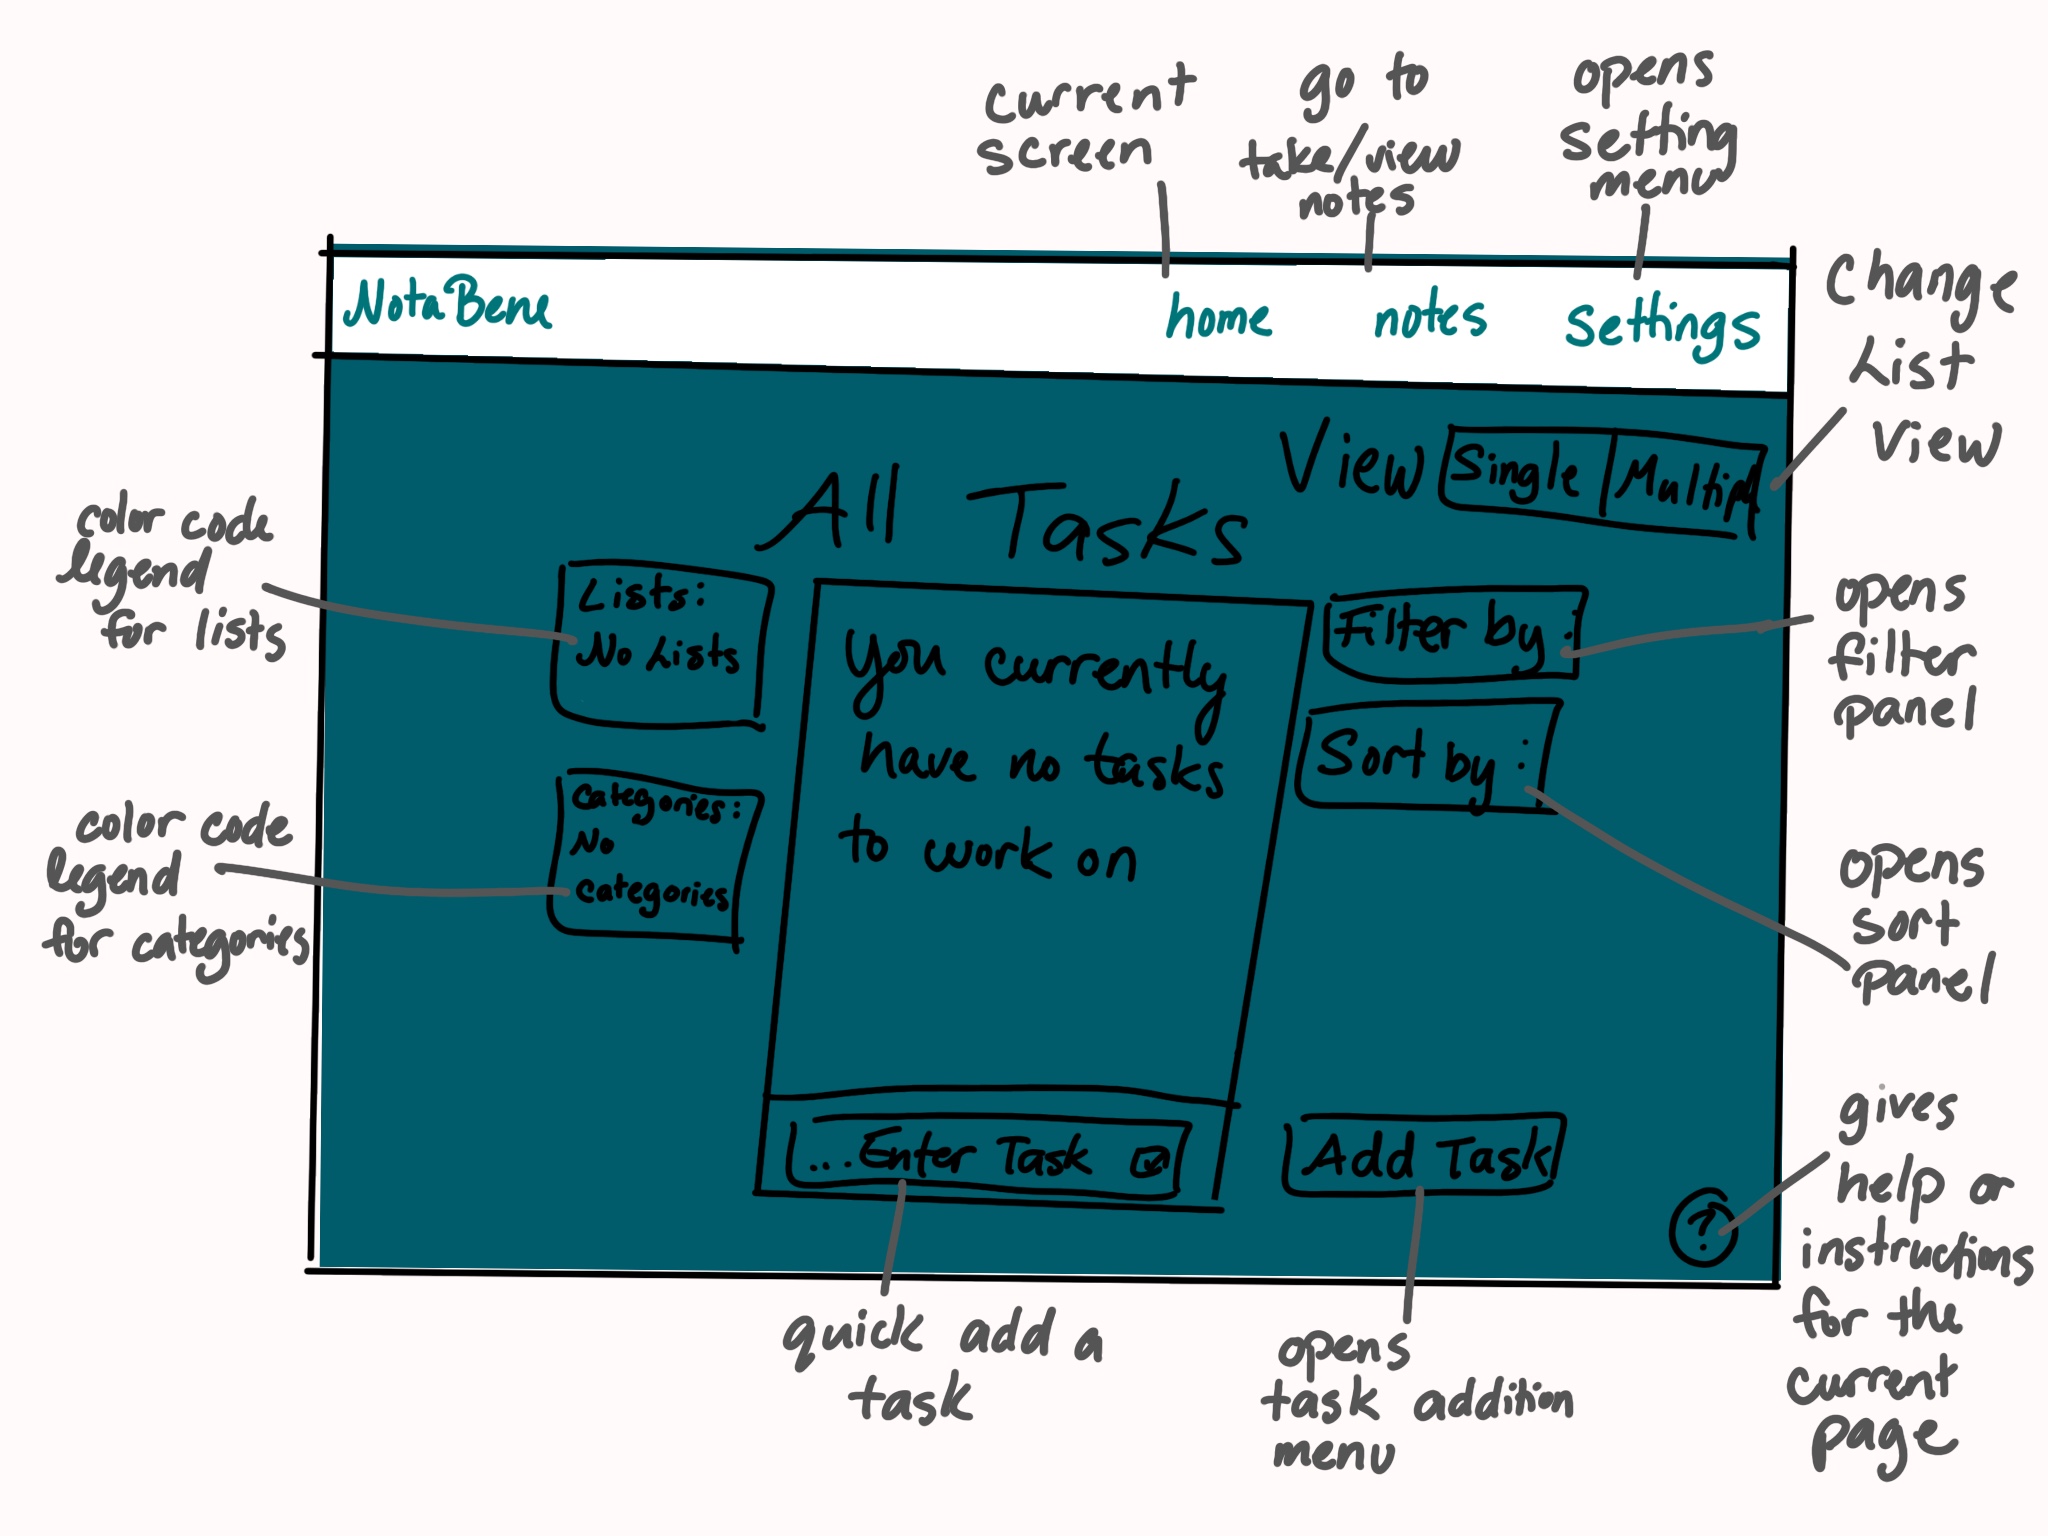 current
screen
go to
take/view
notes
opens
setting
menu
NotaBene
home
notes
settings
Change
List
View
View
Single
Multipl
All Tasks
color code
legend
for lists
Lists:
No Lists
You currently
have no tasks
to work on
Filter by :
opens
filter
panel
Sort by :
opens
sort
panel
color code
legend
for categories
Categories:
No
categories
...Enter Task
Add Task
?
gives
help or
instructions
for the
current
page
quick add a
task
opens
task addition
menu